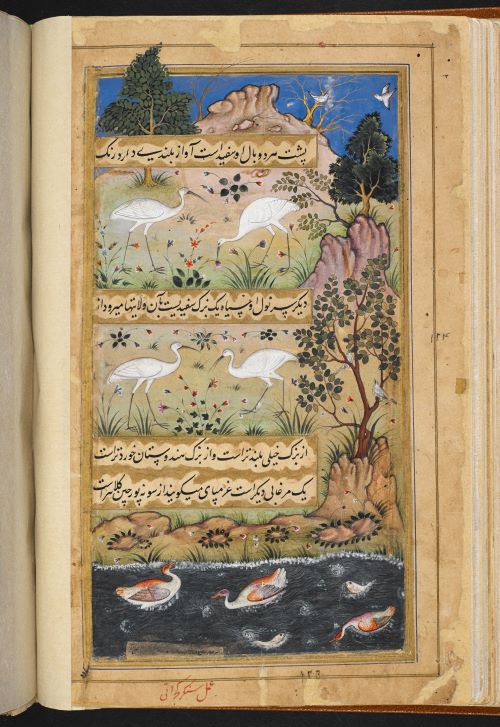 پشت هر دو بال او سفید است آواز بلند سی دارد و رنگ
دیگر سر نول او سیاه یک بزک سفید یست آن ولایتها میرود از
از بزک خیلی بلندتر است و از بزک هندوستان خوردتر است
یک مرغابی دیگر است غرمپای میگویند از سونه پورچین کلانتر است
۱۳۴
۱۳۶
عمل شنکر گجراتی